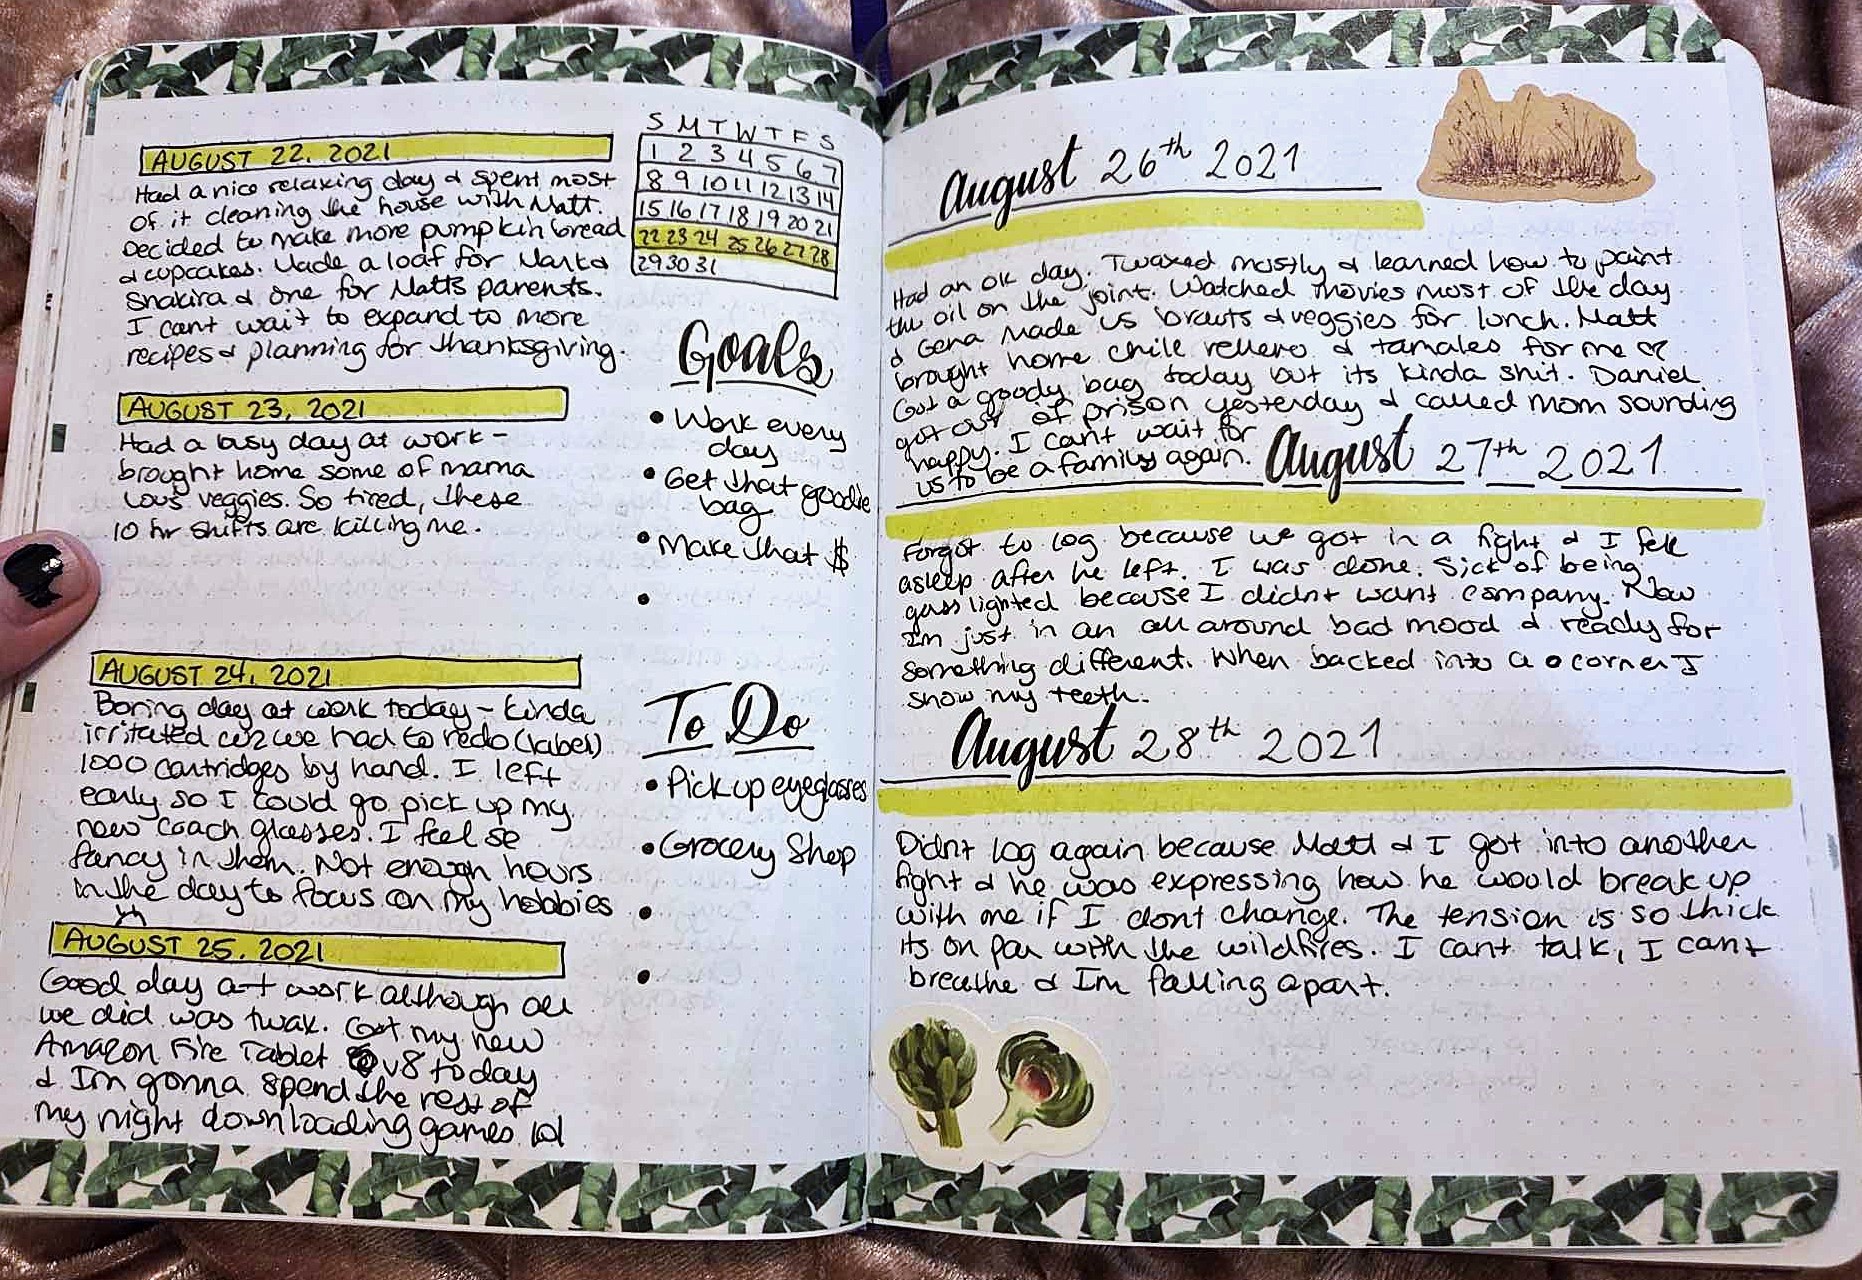 AUGUST 22, 2021
Had a nice relaxing day & spent most
of it cleaning the house with Matt.
Decided to make more pumpkin bread
& cupcakes. Made a loaf for Mark &
Shakira & one for Matts parents.
I cant wait to expand to more
recipes & planning for thanksgiving.
AUGUST 23, 2021
Had a busy day at work -
brought home some of mama
Lous veggies. So tired, these
10 hr shifts are killing me.
AUGUST 24, 2021
Boring day at work today - kinda
irritated cuz we had to redo (label)
1000 cartridges by hand. I left
early so I could go pick up my
new coach glasses. I feel so
fancy in them. Not enough hours
in the day to focus on my hobbies
AUGUST 25, 2021
Good day at work although all
we did was twax. Got my new
Amazon Fire Tablet v8 today
& Im gonna spend the rest of
my night downloading games lol
S M T W T F S
1 2 3 4 5 6 7
8 9 10 11 12 13 14
15 16 17 18 19 20 21
22 23 24 25 26 27 28
29 30 31
Goals
• Work every
day
• Get that goodie
bag
• Make that $
•
To Do
• Pick up eyeglasses
• Grocery Shop
•
•
August 26th 2021
Had an ok day. Twaxed mostly & learned how to paint
the oil on the joint. Watched movies most of the day
& Gena made us brauts & veggies for lunch. Matt
brought home chile rellero & tamales for me
Got a goody bag today but its kinda shit. Daniel
got out of prison yesterday & called mom sounding
happy. I cant wait for
us to be a family again.
August 27th 2021
Forgot to log because we got in a fight & I fell
asleep after he left. I was done. Sick of being
gass lighted because I didnt want company. Now
Im just in an all around bad mood & ready for
something different. When backed into a corner I
show my teeth.
August 28th 2021
Didnt log again because Matt & I got into another
fight & he was expressing how he would break up
with me if I dont change. The tension is so thick
its on par with the wildfires. I cant talk, I cant
breathe & Im falling apart.